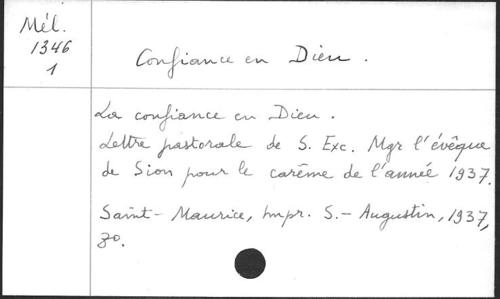 Mél.
1346
1
Confiance en Dieu.
La confiance en Dieu.
Lettre pastorale de S. Exc. Mgr l'évêque
de Sion pour le carême de l'année 1937.
Saint-Maurice, Impr. S.-Augustin, 1937,
8o.